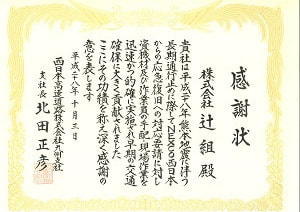 感謝状
株式会社 辻組 殿
貴社は平成二八年熊本地震に伴う
長期通行止めに際してNEXCO西日本
からの応急復旧への対応要請に対し
資機材及び作業員の手配、現場作業を
迅速かつ的確に実施され早期の交通
確保に大きく貢献されました
ここにその功績を称え深く感謝の
意を表します
平成二八年十月三日
西日本高速道路株式会社九州支社
支社長 北田正彦